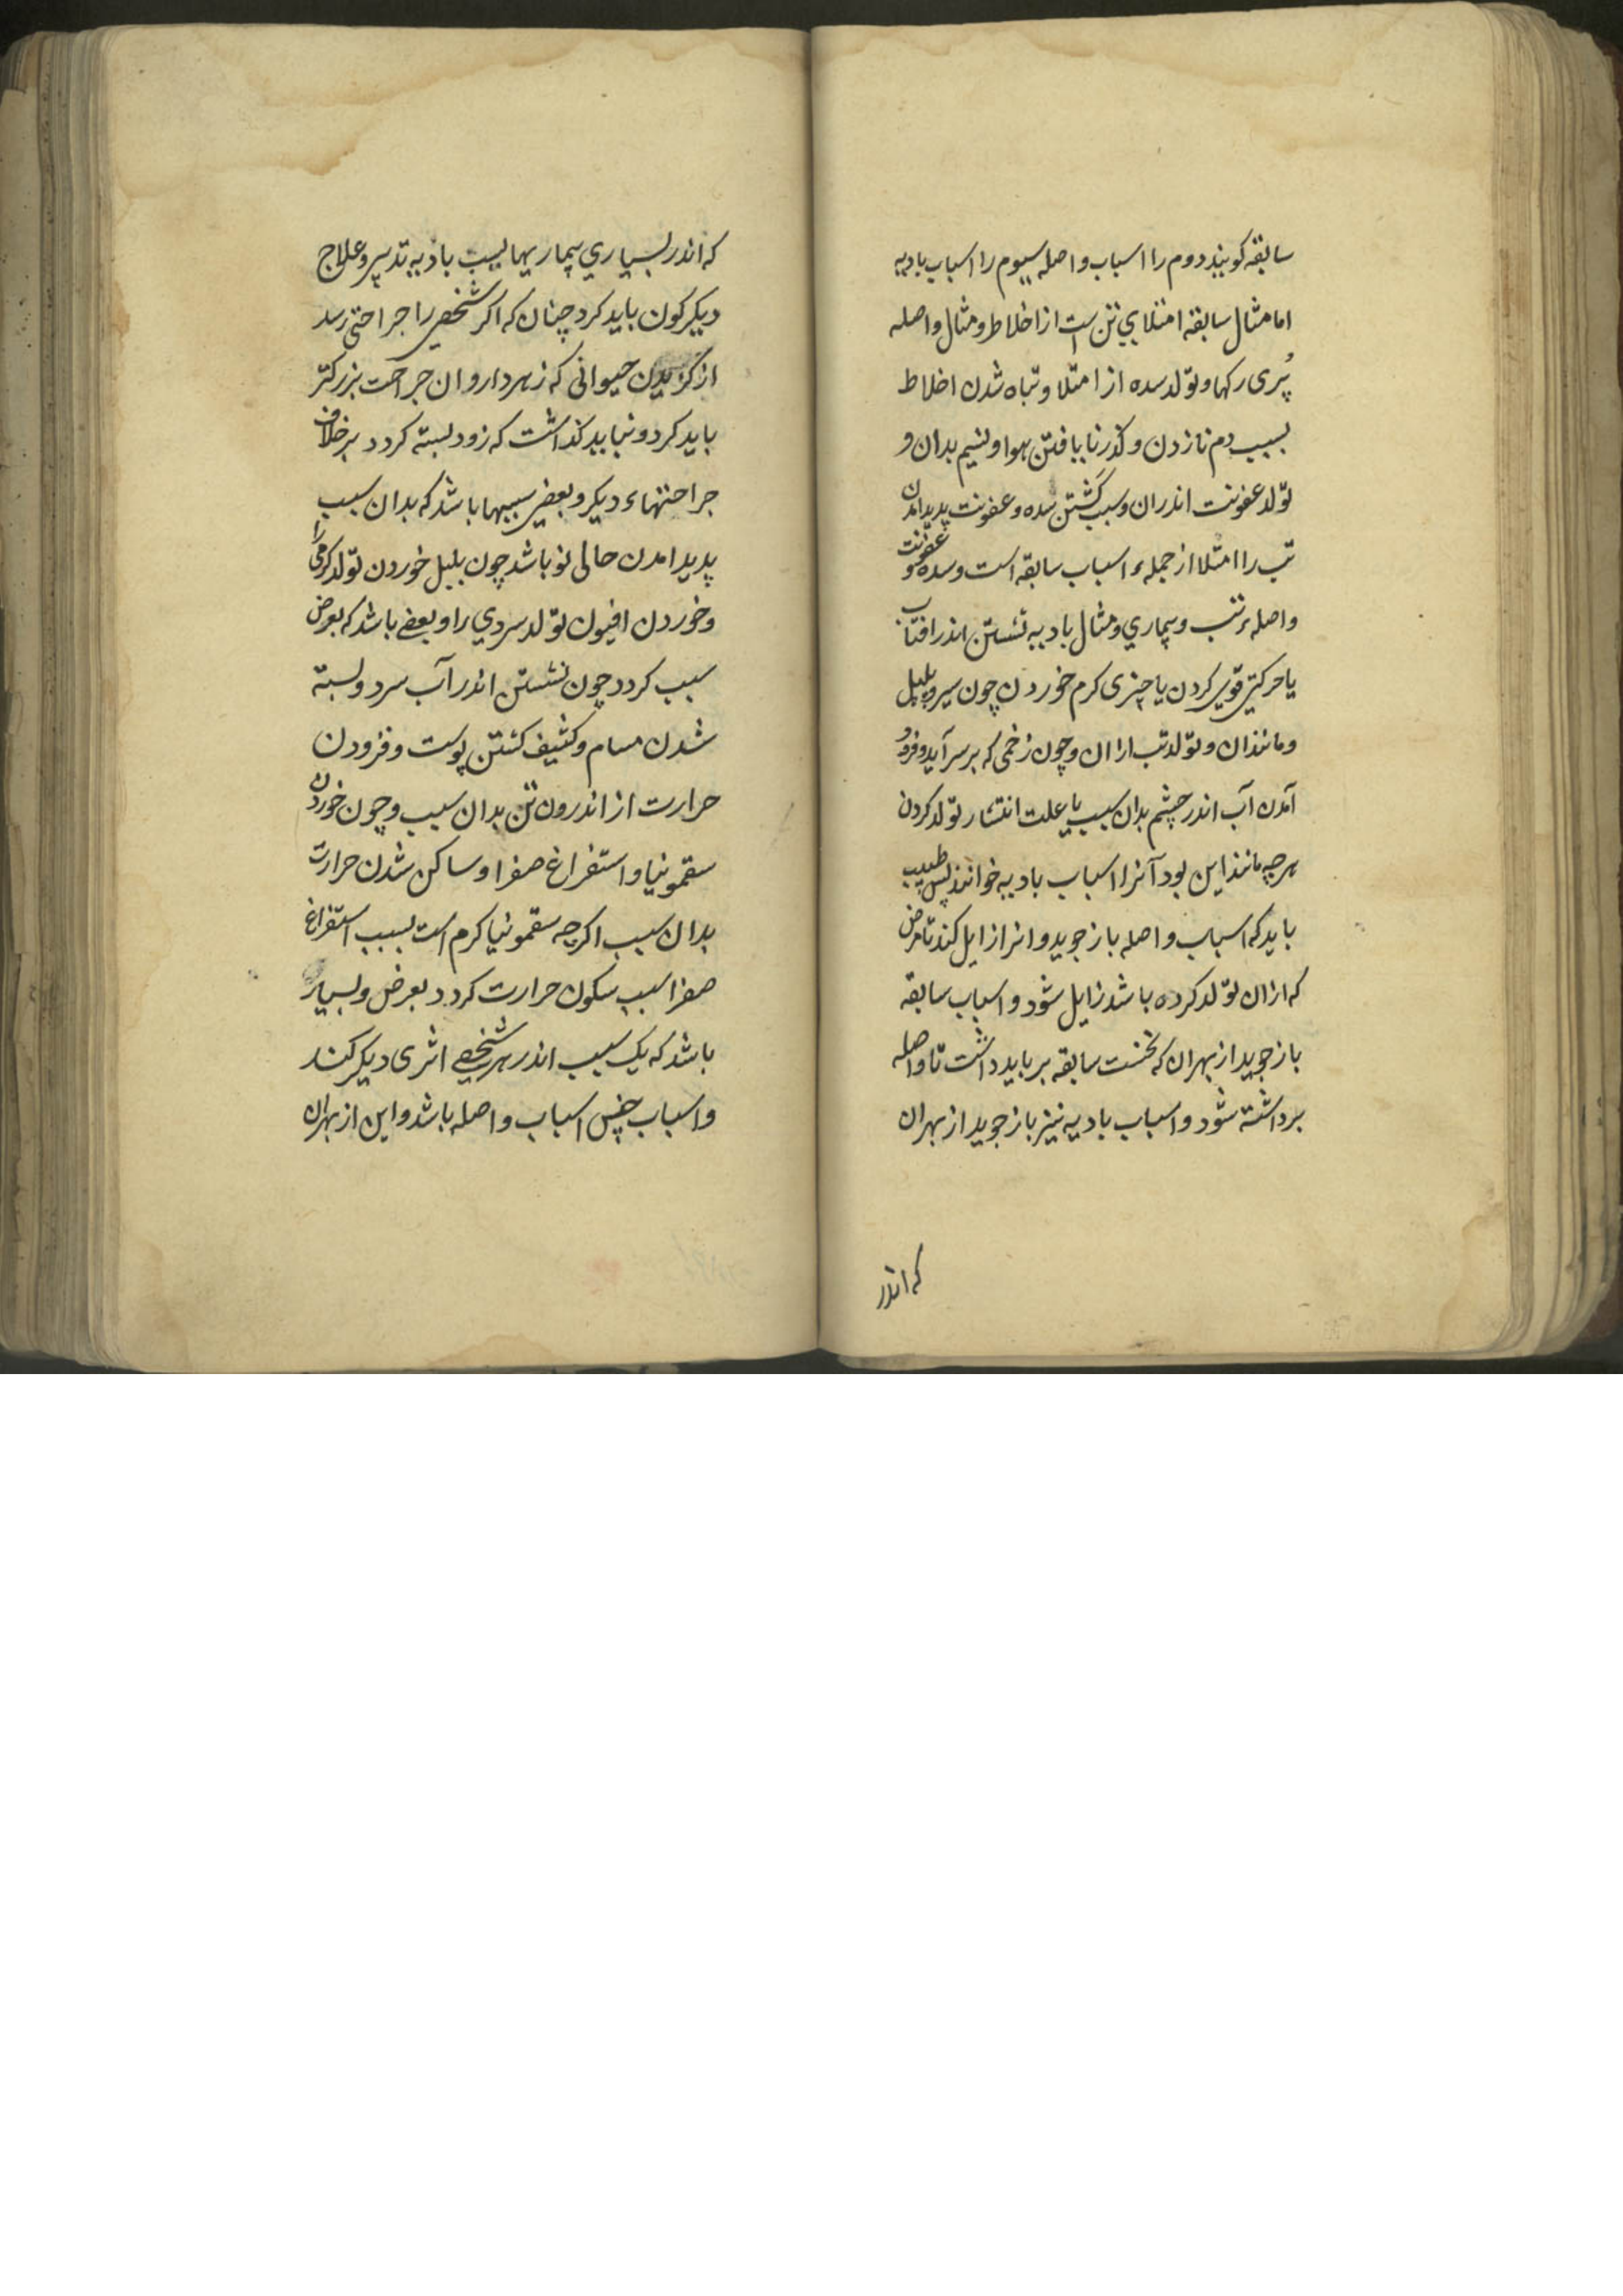 سابقه کویند دوم را اسباب واصله سیوم را اسباب بادیه
اما مثال سابقه امتلای تن است از اخلاط و مثال واصله
پُری رکها و تولد سده از امتلا و تباه شدن اخلاط
بسبب دم نازدن و کذر نایافتن هوا و نسیم بدان و
تولد عفونت اندران و سبب کشتن سده و عفونت پدید امدن
تب را امتلا از جملهء اسباب سابقه است و سده و عفونت
واصلهء تب و بیماری و مثال بادیه نشستن اندر افتاب
یا حرکتی قوی کردن یا چیزی کرم خوردن چون سیر و پلپل
و مانندان و تولد تب ازان و چون زخمی که بر سر آید و فرود
آمدن آب اندر چشم بدان سبب یا علت انتشار تولد کردن
هرچه مانند این بود آنرا اسباب بادیه خوانند پس طبیب
باید که اسباب واصله باز جوید و انرا زایل کند تا مرض
که ازان تولد کرده باشد زایل شود و اسباب سابقه
باز جوید از بهران که نخست سابقه بر باید داشت تا واصله
برداشته شود و اسباب بادیه نیز باز جوید از بهران
که اندر
که اندر بسیاری بیماریها بسبب بادیه تدبیر و علاج
دیکرکون باید کرد چنان که اکر شخصی را جراحتی رسد
از کزیدن حیوانی که زهر دارد ان جراحت بزرکتر
باید کرد و نباید کذاشت که زود بسته کردد بر خلاف
جراحتهاء دیکر و بعضی سببها باشد که بدان سبب
پدید امدن حالی نو باشد چون پلپل خوردن تولد کرمی را
و خوردن افیون تولد سردی را و بعضی باشد که بعرض
سبب کردد چون نشستن اندر آب سرد و بسته
شدن مسام و کثیف کشتن پوست و فزودن
حرارت از اندرون تن بدان سبب و چون خوردن
سقمونیا و استفراغ صفرا و ساکن شدن حرارت
بدان سبب اکرچه سقمونیا کرم است بسبب استفراغ
صفرا سبب سکون حرارت کردد بعرض و بسیار
باشد که یک سبب اندر هر شخصی اثری دیکر کند
و اسباب جنس اسباب واصله باشد و این از بهران